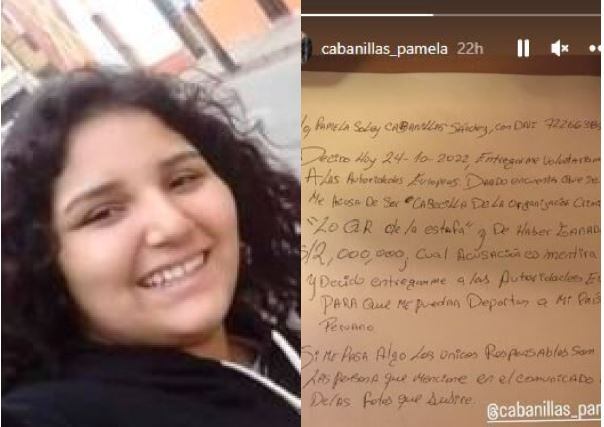 cabanillas_pamela 22h
PAMELA Soley CABANILLAS Sánchez, con DNI
Decido Hoy 24-10-2022, Entregarme
A Las Autoridades Europeas, Dado encuenta Que Se
Me Acusa De Ser "CABECILLA De La Organización
"Los QR de la estafa" y De Haber
S/2,000,000, Cual Acusación es mentira
y Decido entregarme a las Autoridades
PARA Que me puedan Deportar a Mi
Peruano
Si Me PASA Algo Los Unicos Responsables Son
Las persona que mencione en el comunicado
De las Fotos que subire.
@cabanillas_par